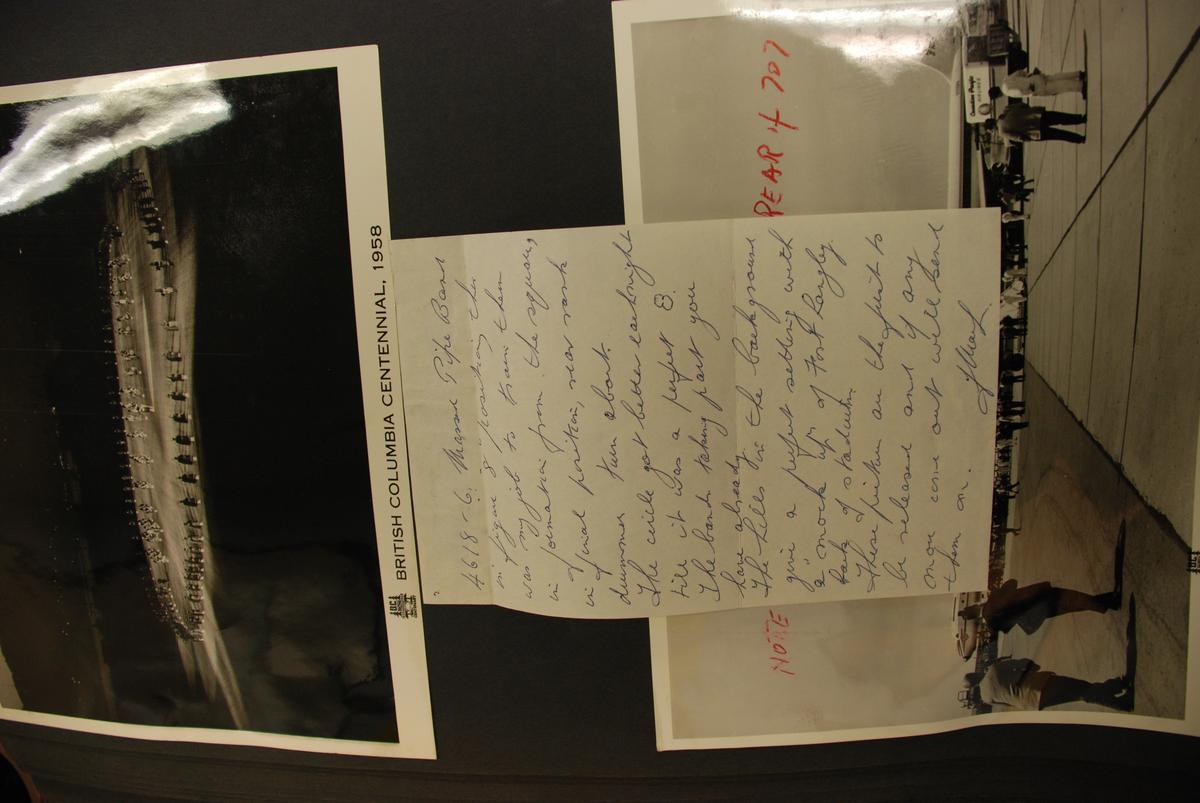 BRITISH COLUMBIA CENTENNIAL, 1958
4618-6. Massed Pipe Band
in figure 8 positioning then
was my job to train them
in formation from the square,
in final position, rear rank
drummer turn about.
The circle got better each night
till it was a perfect 8.
The bands taking part you
have already
The hills in the background
give a perfect setting with
a "mock up" of Fort Langley
back of stadium.
These pictures are the first to
be released and if any
more come out will send
them on.
NOTE
PEAR 4 707
Canadian Pacific